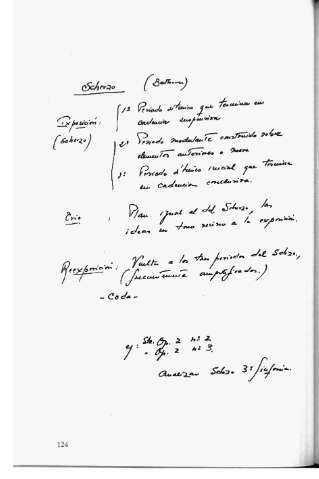 Scherzo (Beethoven)
Exposición: (Scherzo)
1º Período temático que termina en
cadencia suspensiva
2º Período modulante construido sobre
elementos anteriores o nuevos
3º Período temático inicial que termina
en cadencia conclusiva.
Trio : Plan igual al del Scherzo, las
ideas en tono vecino a la exposición.
Reexposición: Vuelta a los tres períodos del Scherzo,
(frecuentemente amplificados.)
- Coda -
ej: Op. 2 nº 2
- Op. 2 nº 3.
Analizar Scherzo 3ª Sinfonía.
124